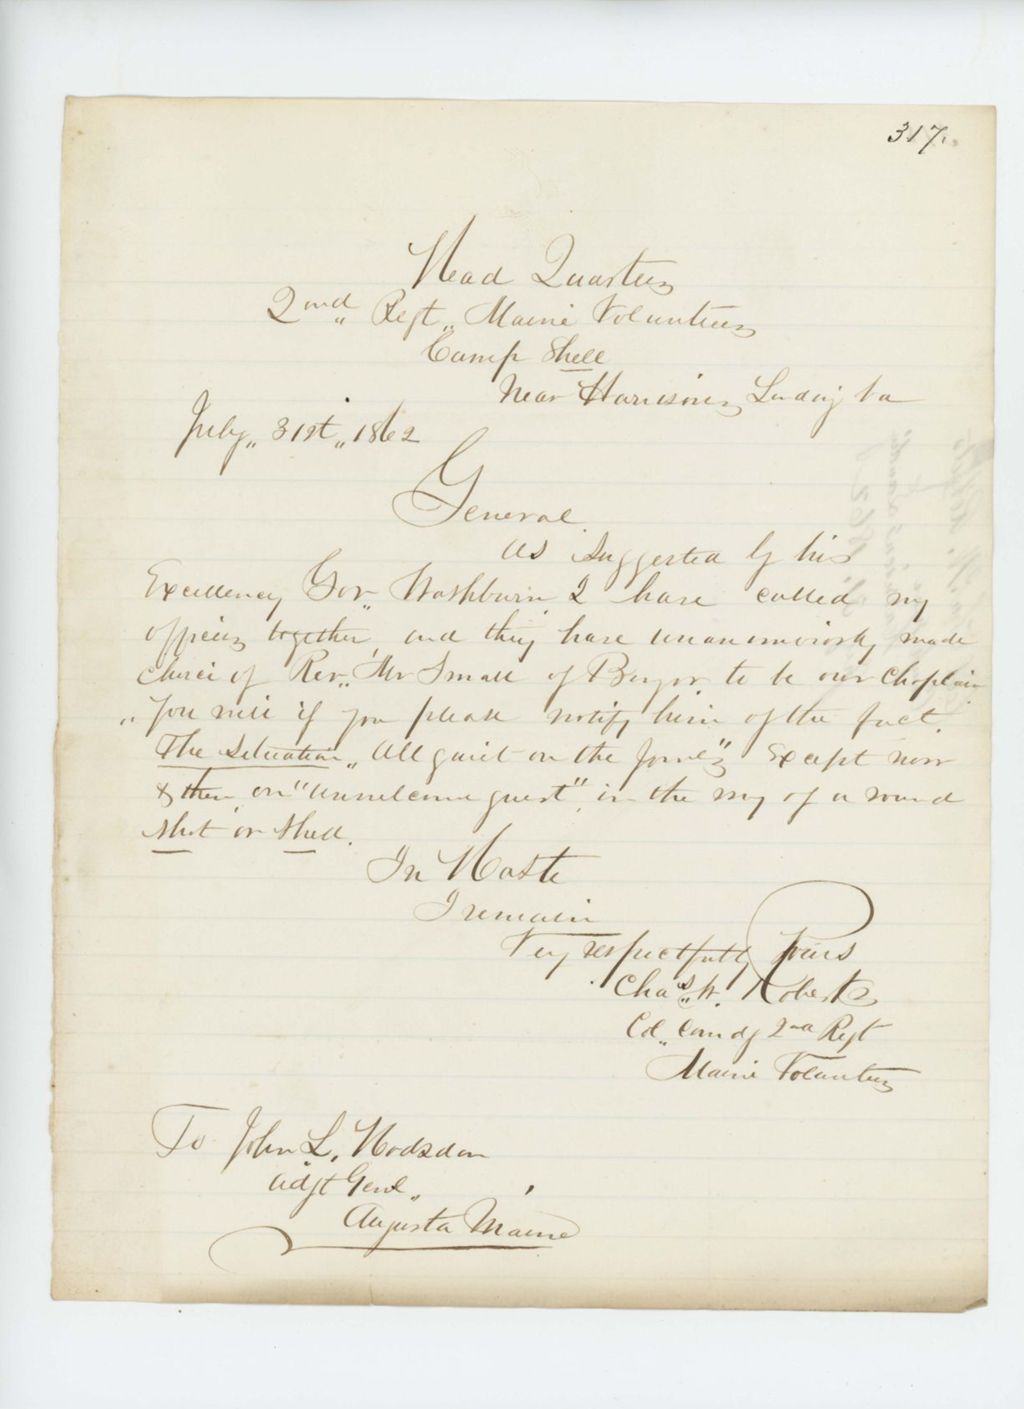 317.
Head Quarters
2ond„ Regt„ Maine Volunteers
Camp Shell
Near Harrisons Landing Va
July„ 31st„ 1862
General
As suggested by his
Excellency Gov„ Washburn I have called my
officers together, and they have unanimously made
choice of Rev„ Mr Small of Bangor, to be our Chaplain
„ You will if you please notify him of the fact.
The Situation„ "All quiet on the James" Except now
& then, an "unwelcome guest", in the way of a round
shot or shell.
In Haste
I remain
Very respectfully Yours
Chas„ W. Roberts
Col„ Comdg 2nd Regt
Maine Volunteers
To John L. Hodsdon
Adjt Genl„
Augusta Maine